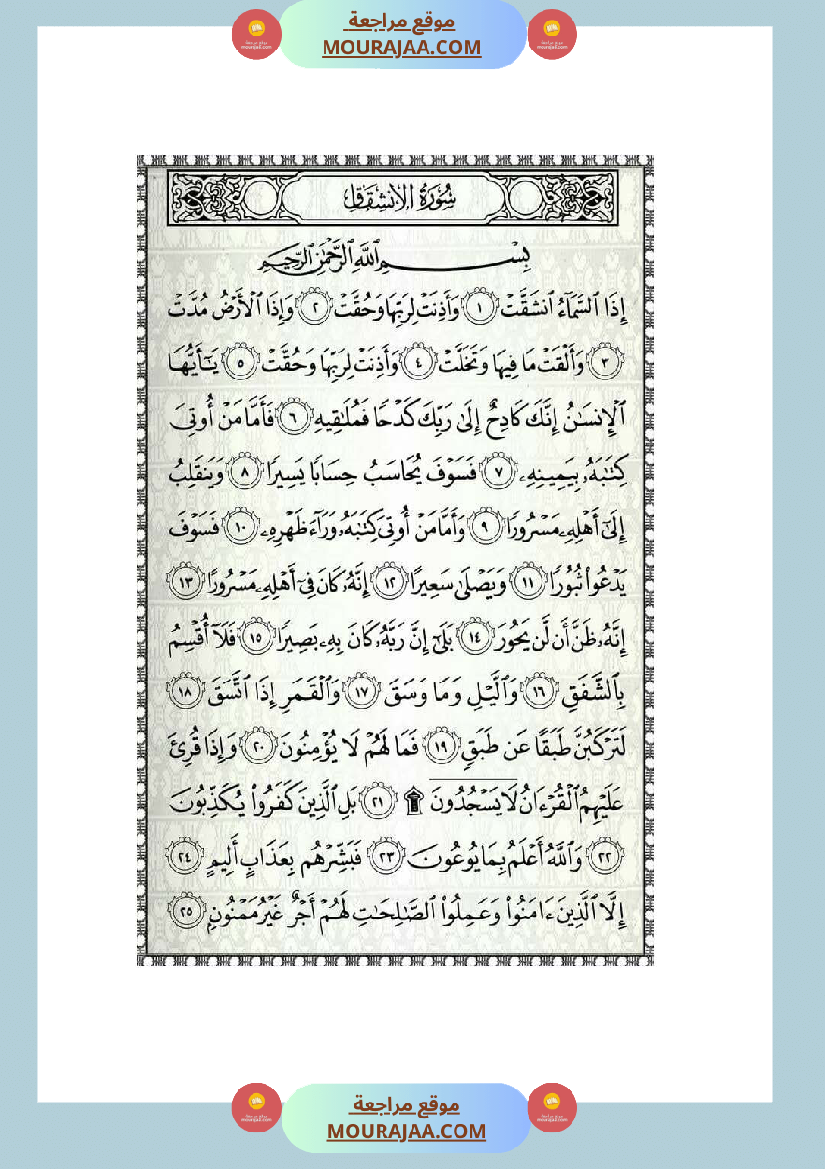 موقع مراجعة
MOURAJAA.COM
سُورَةُ الِانشِقَاقِ
بِسْمِ ٱللَّهِ ٱلرَّحْمَٰنِ ٱلرَّحِيمِ
إِذَا ٱلسَّمَآءُ ٱنشَقَّتْ ١ وَأَذِنَتْ لِرَبِّهَا وَحُقَّتْ ٢ وَإِذَا ٱلْأَرْضُ مُدَّتْ
٣ وَأَلْقَتْ مَا فِيهَا وَتَخَلَّتْ ٤ وَأَذِنَتْ لِرَبِّهَا وَحُقَّتْ ٥ يَٰٓأَيُّهَا
ٱلْإِنسَٰنُ إِنَّكَ كَادِحٌ إِلَىٰ رَبِّكَ كَدْحًا فَمُلَٰقِيهِ ٦ فَأَمَّا مَنْ أُوتِىَ
كِتَٰبَهُۥ بِيَمِينِهِۦ ٧ فَسَوْفَ يُحَاسَبُ حِسَابًا يَسِيرًا ٨ وَيَنقَلِبُ
إِلَىٰٓ أَهْلِهِۦ مَسْرُورًا ٩ وَأَمَّا مَنْ أُوتِىَ كِتَٰبَهُۥ وَرَآءَ ظَهْرِهِۦ ١٠ فَسَوْفَ
يَدْعُوا۟ ثُبُورًا ١١ وَيَصْلَىٰ سَعِيرًا ١٢ إِنَّهُۥ كَانَ فِىٓ أَهْلِهِۦ مَسْرُورًا ١٣
إِنَّهُۥ ظَنَّ أَن لَّن يَحُورَ ١٤ بَلَىٰٓ إِنَّ رَبَّهُۥ كَانَ بِهِۦ بَصِيرًا ١٥ فَلَآ أُقْسِمُ
بِٱلشَّفَقِ ١٦ وَٱلَّيْلِ وَمَا وَسَقَ ١٧ وَٱلْقَمَرِ إِذَا ٱتَّسَقَ ١٨
لَتَرْكَبُنَّ طَبَقًا عَن طَبَقٍ ١٩ فَمَا لَهُمْ لَا يُؤْمِنُونَ ٢٠ وَإِذَا قُرِئَ
عَلَيْهِمُ ٱلْقُرْءَانُ لَا يَسْجُدُونَ ۩ ٢١ بَلِ ٱلَّذِينَ كَفَرُوا۟ يُكَذِّبُونَ
٢٢ وَٱللَّهُ أَعْلَمُ بِمَا يُوعُونَ ٢٣ فَبَشِّرْهُم بِعَذَابٍ أَلِيمٍ ٢٤
إِلَّا ٱلَّذِينَ ءَامَنُوا۟ وَعَمِلُوا۟ ٱلصَّٰلِحَٰتِ لَهُمْ أَجْرٌ غَيْرُ مَمْنُونٍۭ ٢٥
موقع مراجعة
MOURAJAA.COM